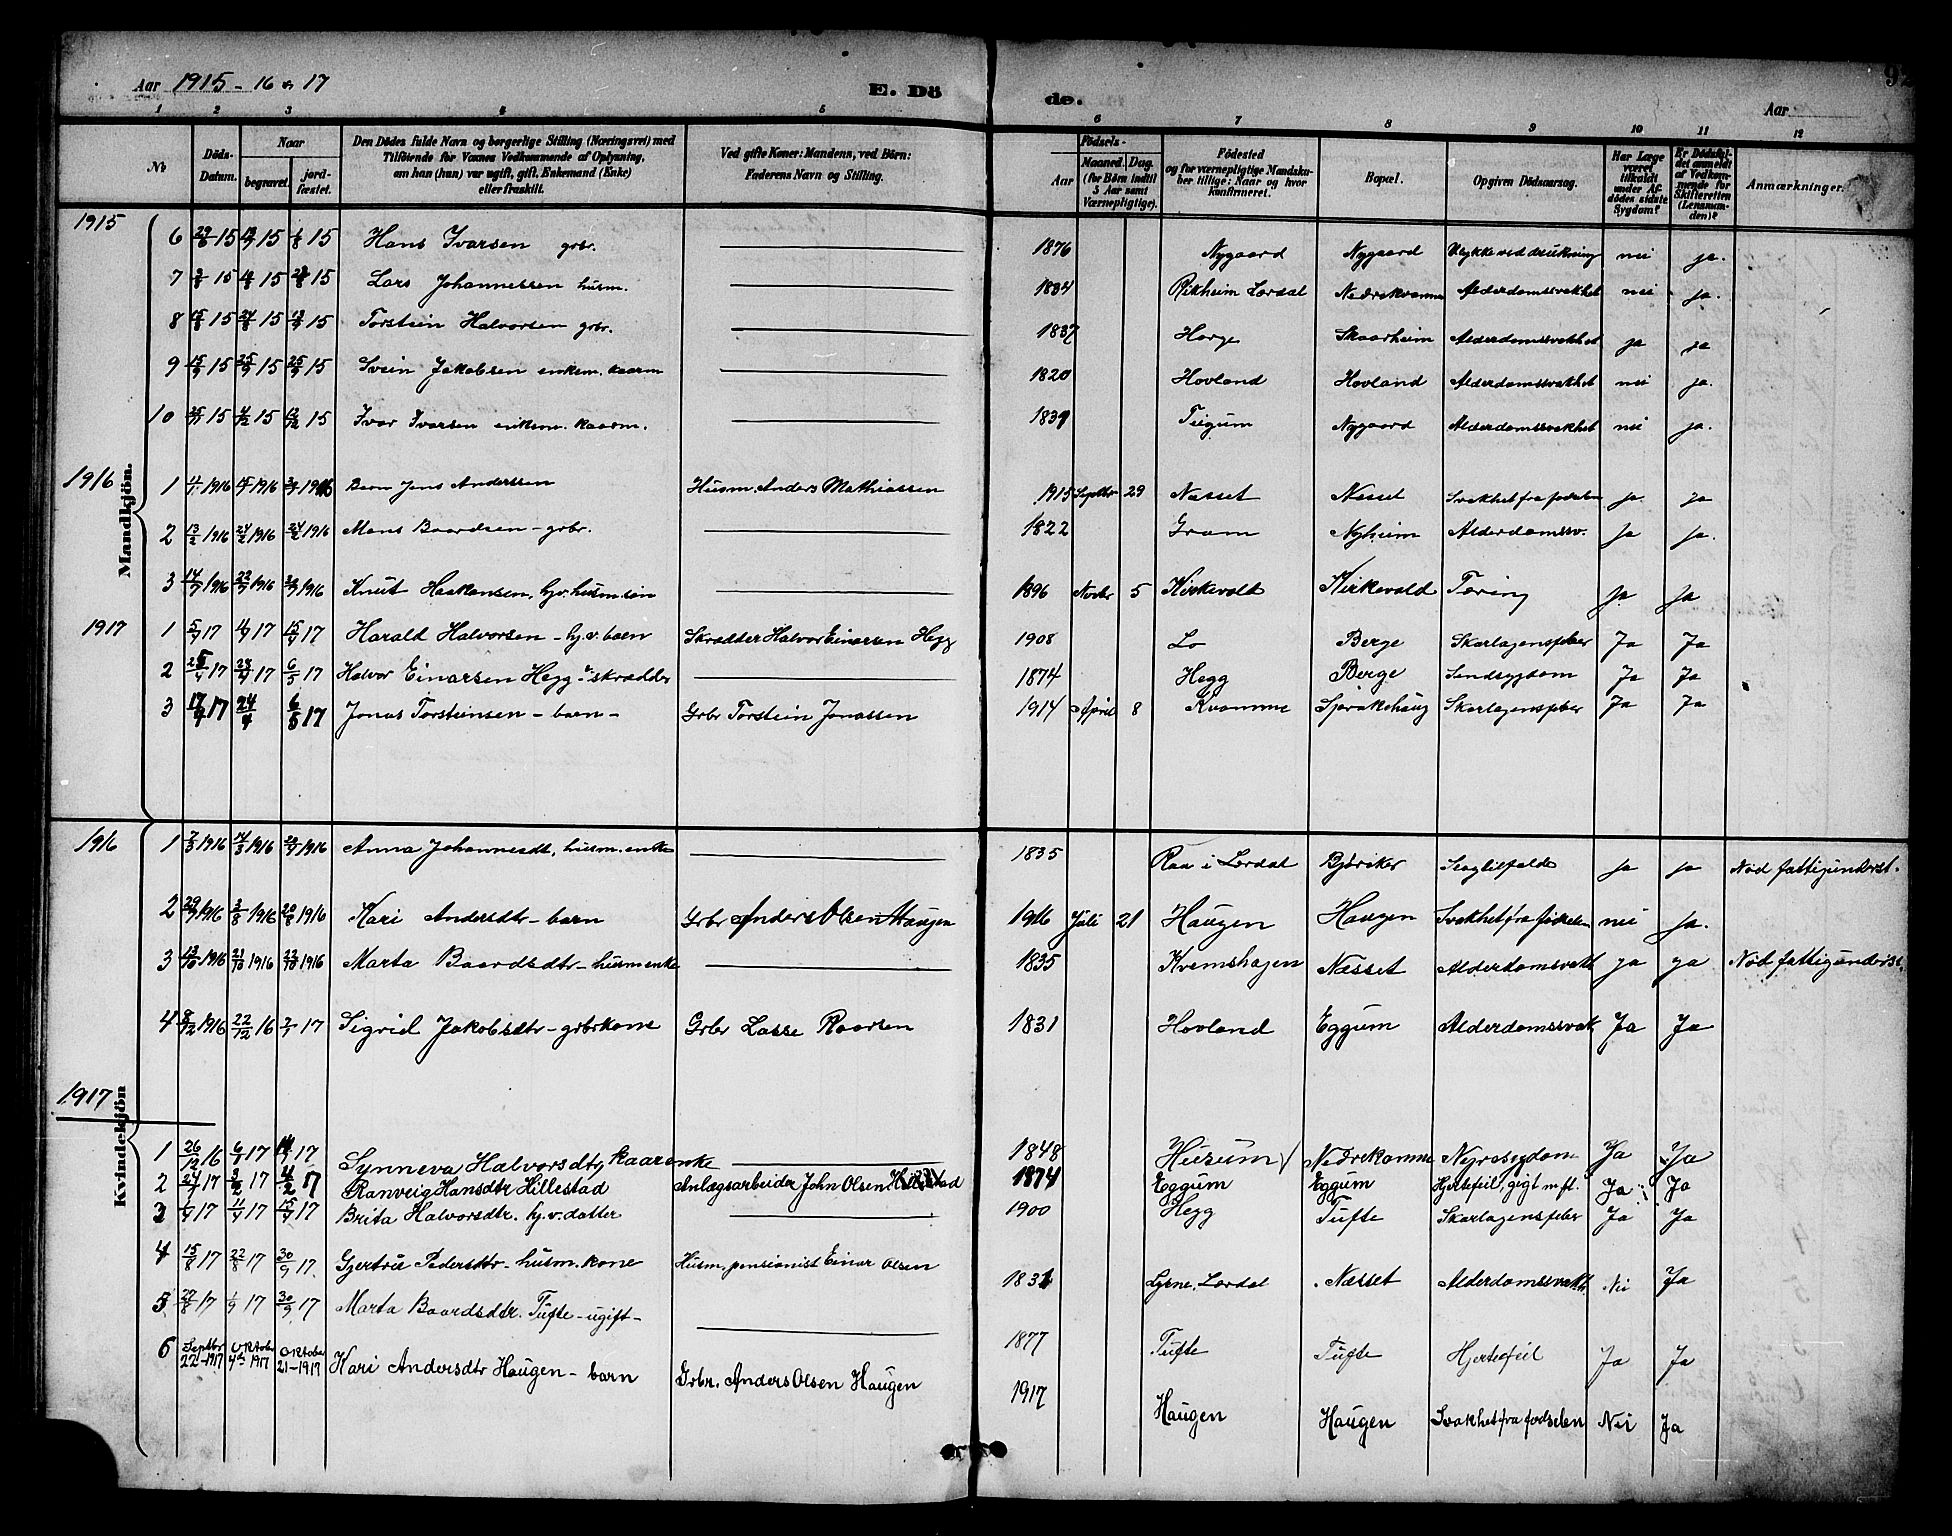 Aar 1915 - 16 & 17
E. Dö
de.
92
Aar
1 2 3 4 5 6 7 8 9 10 11 12
No
Döds-Datum.
Naar
begravet.
jord-fæstet.
Den Dödes fulde Navn og borgerlige Stilling (Næringsvei) med
Tilföiende for Voxnes Vedkommende af Oplysning,
om han (hun) var ugift, gift, Enkemand (Enke)
eller fraskilt.
Ved gifte Koner: Mandens, ved Börn:
Faderens Navn og Stilling.
Födsels-
Aar
Maaned. Dag.
(for Börn indtil
5 Aar samt
Værnepligtige).
Födested
og for værnepligtige Mandska-
ber tillige: Naar og hvor
konfirmeret.
Bopæl.
Opgiven Dödsaarsag.
Har Læge
været
tilkaldt
under Af-
dödes sidste
Sygdom?
Er Dödsfal-
det anmeldt
af Vedkom-
mende for
Skifteretten
(Lensman-
den)?
Anmærkninger.
Mandkjön.
1915
6 15 15 1/8 15 Hans Ivarsen grbr. 1876 Nygaard Nygaard Ulykke ved drukning nei ja.
7 15 15 15 Lars Johannessen husm. 1834 Rikheim Lærdal Nedrekvamme Alderdomssvakhet nei ja.
8 15/8 15 24/8 15 15 Torstein Halvorsen grbr. 1837 Horge Skaarheim Alderdomssvakhet ja ja
9 15/9 15 25/9 15 25/9 15 Svein Jakobsen enkem. kaarm 1820 Hovland Hovland Alderdomssvakhet nei ja.
10 15 4/12 15 12/12 15 Ivar Ivarsen enkem. kaarm. 1831 Tugum Nygaard Alderdomssvakhet nei ja.
1916
1 1916 1916 1916 Barn Jens Anderssen Husm. Anders Mathiassen 1915 Septbr 29 Næsset Næsset Svakhet fra fødselen ja ja
2 13/2 1916 24/2 1916 24/2 1916 Mons Baardsen - grbr. 1822 Gram Nyheim Alderdomssv. Ja Ja.
3 14/7 1916 22/7 1916 1916 Knut Haakonsen, hjv. husm.søn 1896 Novbr 5 Kirkevold Kirkevold Tæring Ja Ja
1917
1 17 17 15/4 17 Harald Halvorsen - hj.v. barn Skrædder Halvor Einarsen Hegg 1908 Lo Berge Skarlagensfeber Ja Ja
2 17 17 6/5 17 Halvor Einarsen Hegg - skrædder 1874 Hegg Berge Sindsygdom Ja Ja
3 17/4 17 24/4 6/5 17 Jonas Torsteinsen - barn - Grbr Torstein Jonassen 1914 April 8 Kvamme Sjørakehaug Skarlagensfeber Ja Ja
Kvindekjön
1916
1 7/3 1916 14/3 1916 1916 Anna Johannesdt. husm. enke 1835 Raa i Lærdal Bjøriker Slagtilfælde ja ja Nød fattigunderst.
2 29/7 1916 3/8 1916 20/8 1916 Kari Andersdtr - barn Grbr Anders Olsen Haugen 1916 Juli 21 Haugen Haugen Svakhet fra fødselen nei ja.
3 13/10 1916 21/10 1916 1916 Marta Baardsdtr - husm enke 1835 Kvemshagen Næsset Alderdomsvakt ja ja Nød fattigunderst.
4 8/12 1916 22/12 16 17 Sigrid Jakobsdtr - grbrkone Grbr Lasse Roarsen 1831 Hovland Eggum Alderdomssvak Ja Ja
1917
1 26/12 16 6/1 17 17 Synneva Halvorsdtr, kaarenke 1848 Husum Nedrekamme Nyresygdom Ja Ja
2 24/1 17 3/2 17 4/2 7 Ranveig Hansdtr Hillestad Anlægsarbeider John Olsen Hillestad 1874 Eggum Eggum Hjertefeil, gigt m.fl. Ja Ja
3 17 17 15/4 17 Brita Halvorsdtr. hj.v. datter 1900 Hegg Tufte Skarlagensfeber Ja Ja
4 15/8 17 22/8 17 30/9 17. Gjertrud Pedersdtr - husm. kone Husm. pensionist Einar Olsen 1831 Lysne, Lærdal Næsset Alderdomssvakt Nei Ja
5 27/8 17 1/9 17 30/9 17 Marta Baardsdtr. Tufte - ugift - 1877 Tufte Tufte Hjertefeil Ja Ja
6 Septbr 22-1917 Oktober 4de 1917 Oktober 21-1917 Kari Andersdtr Haugen - barn Grbr. Anders Olsen Haugen 1917 Haugen Haugen Svakhet fra fødselen Nei Ja